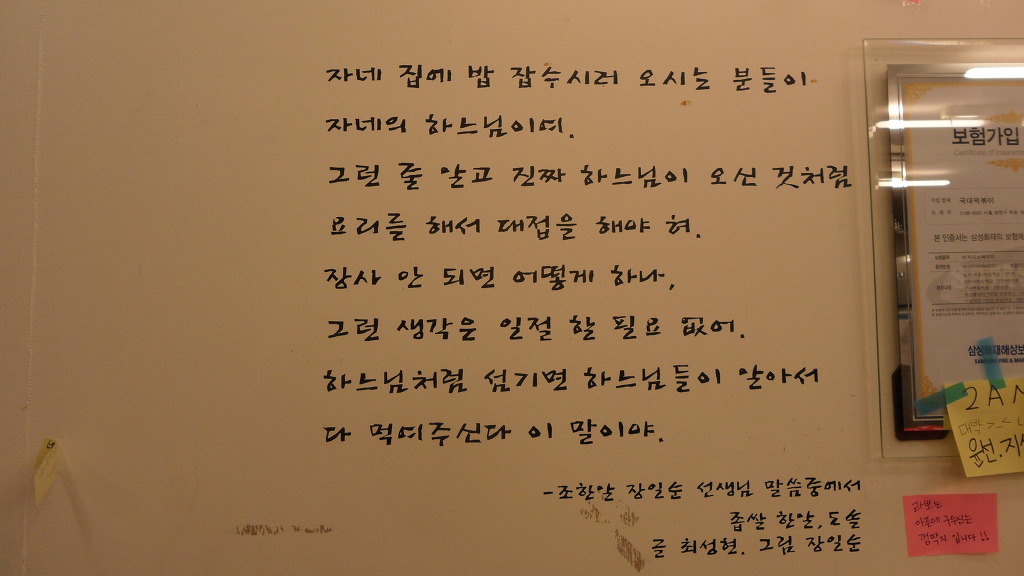 자네 집에 밥 잡수시러 오시는 분들이
자네의 하느님이여.
그런 줄 알고 진짜 하느님이 오신 것처럼
요리를 해서 대접을 해야 혀.
장사 안 되면 어떻게 하나,
그런 생각은 일절 할 필요 없어.
하느님처럼 섬기면 하느님들이 알아서
다 먹여주신다 이 말이야.
-조한알 장일순 선생님 말씀중에서
좁쌀 한알, 도솔
글 최성현. 그림 장일순
보험가입
Certificate of Insurance
국대떡볶이
본 인증서는 삼성화재의 보험
삼성화재해상보
2 A
대박 >_<
윤선.지
라뽀는
입니다!!